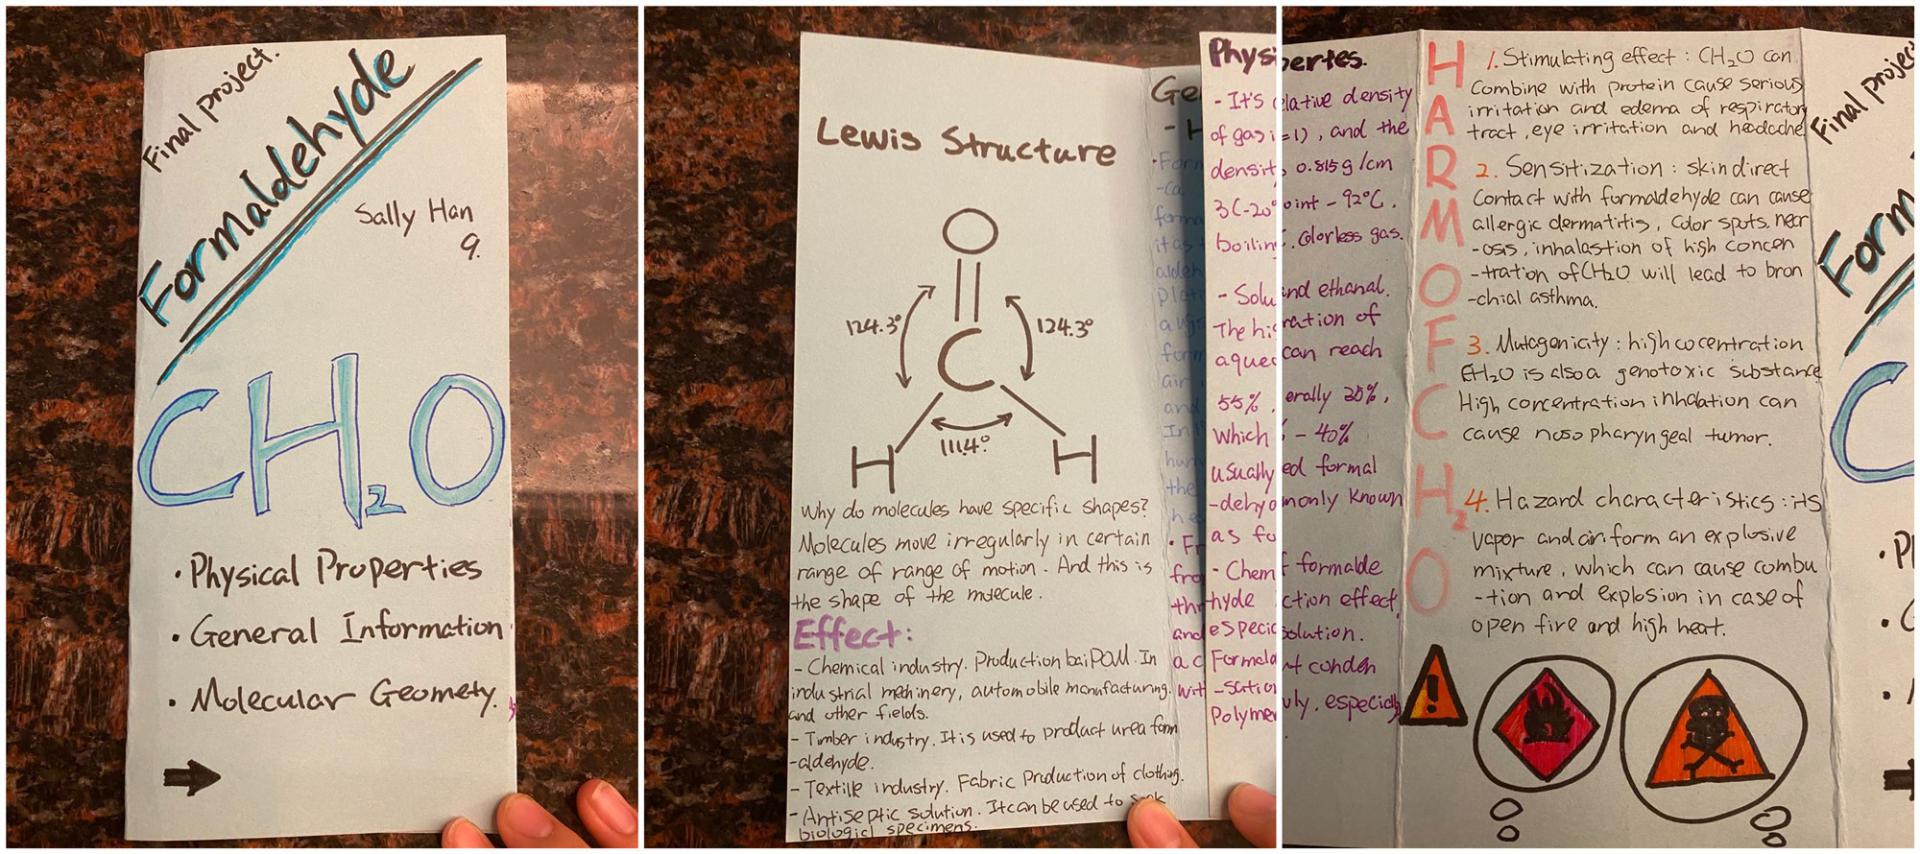 Final project.
Formaldehyde
Sally Han
9.
CH₂O
· Physical Properties
· General Information
· Molecular Geomety.
Lewis Structure
O
124.3°
124.3°
C
111.4°
H
H
Why do molecules have specific shapes?
Molecules move irregularly in certain
range of range of motion. And this is
the shape of the molecule.
Effect:
- Chemical industry. Production bai POM. In
industrial mechinery, automobile manufacturing.
and other fields.
- Timber industry. It is used to product urea form
-aldehyde.
- Textile industry. Fabric Production of clothing.
- Antiseptic solution. It can be used to
biologicl specimens.
Ge
- H
Form
-ca
form
it as
alden
air
and
In
hum
the
he
· Fr
fro
thr
and
a c
wit
Physi
- It's
of gas
densit
3 C-20°
boilin
- Solu
The hig
aqueo
55%
Which
usually
-dehyd
as fo
- Chem
hyde
especia
Formald
-sation
Polymer
pertes.
elative density
=1), and the
0.815g/cm
oint - 92°C.
. Colorless gas.
and ethanal.
ration of
can reach
erally 35%,
- 40%
ed formal
monly known
f formalde
ction effect,
solution.
t conden
uly, especially
HARM OF CH₂O
1. Stimulating effect : CH₂O can
Combine with protein cause serious
irritation and edema of respiratory
tract, eye irritation and headache
2. Sensitization : skin direct
Contact with formaldehyde can cause
allergic dermatitis, Color spots, necr
-osis, inhalastion of high concen
-tration of CH₂O will lead to bron
-chial asthma.
3. Mutagenicity : high cocentration
CH₂O is also a genotoxic substance
High concentration inhalation can
cause noso pharyngeal tumor.
4. Hazard characteristics : its
vapor and air form an explosive
mixture, which can cause combu
-tion and explosion in case of
open fire and high heat.
!
Final project
Form
C
· P